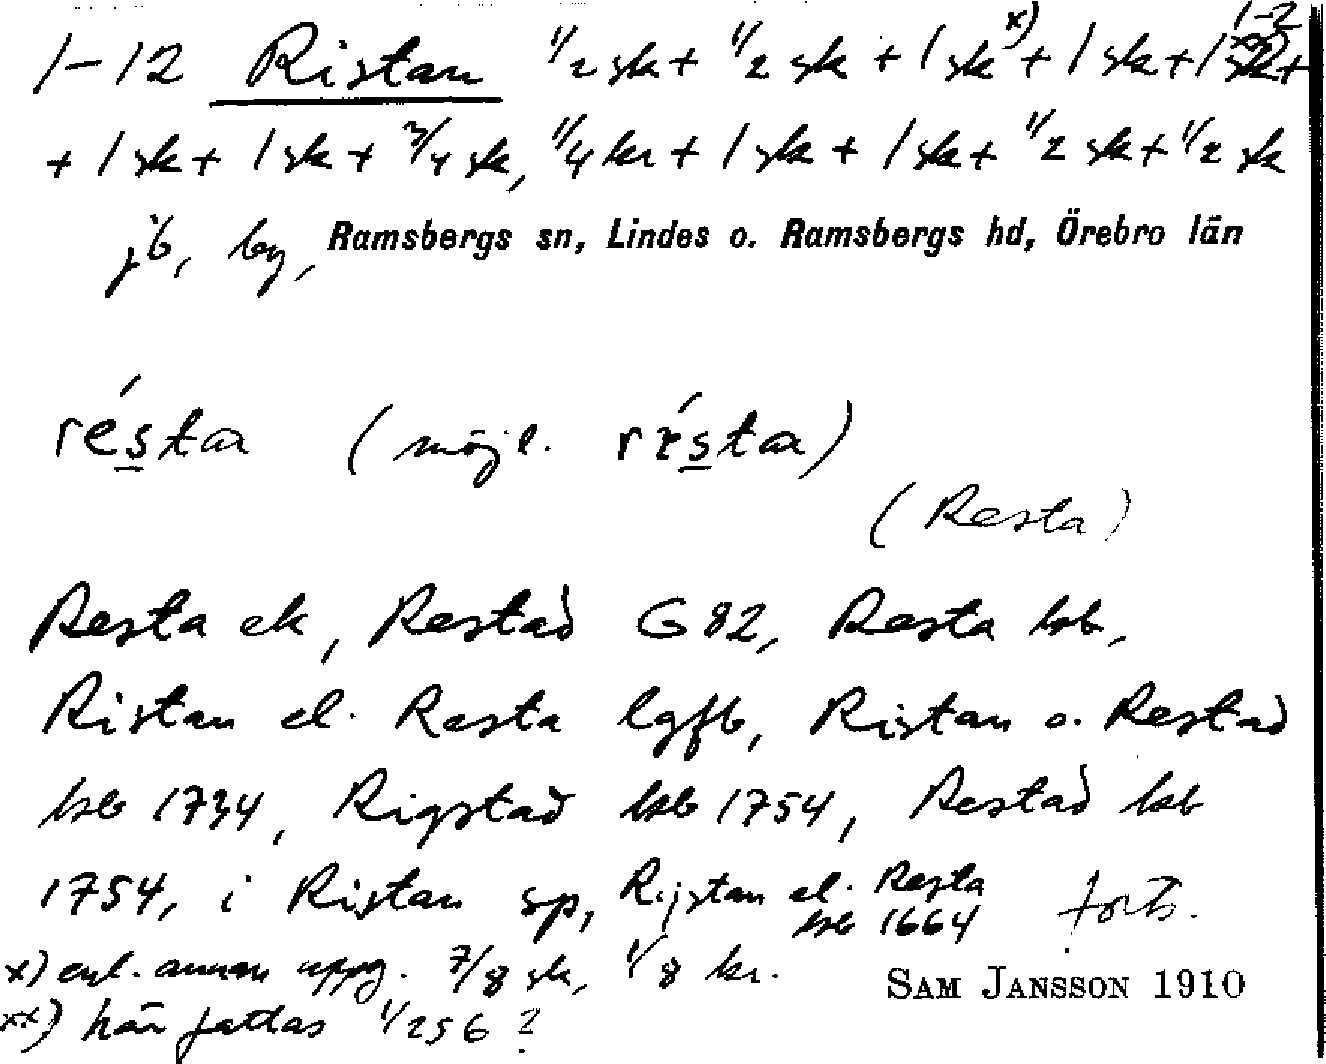 1-12 Ristan 1/2 sk + 1/2 sk + 1 sk x) + 1 sk + 1 sk xx) +
1-2
+ 1 sk + 1 sk + 3/4 sk, 1/4 kr + 1 sk + 1 sk + 1/2 sk + 1/2 sk
jb, by, Ramsbergs sn, Lindes o. Ramsbergs hd, Örebro län
résta (möjl. rɪ́sta)
(Resta)
Resta ek, Restad G 82, Resta hsb,
Ristan el. Resta lgfb, Ristan o. Restad
hsb 1734, Rigstad hsb 1754, Restad hsb
1754, i Ristan sp, Rijstan el. Resta
hsb 1664 forts.
x) enl. annan uppg. 7/8 sk, 1/8 kr.
xx) här fattas 1/256?
SAM JANSSON 1910